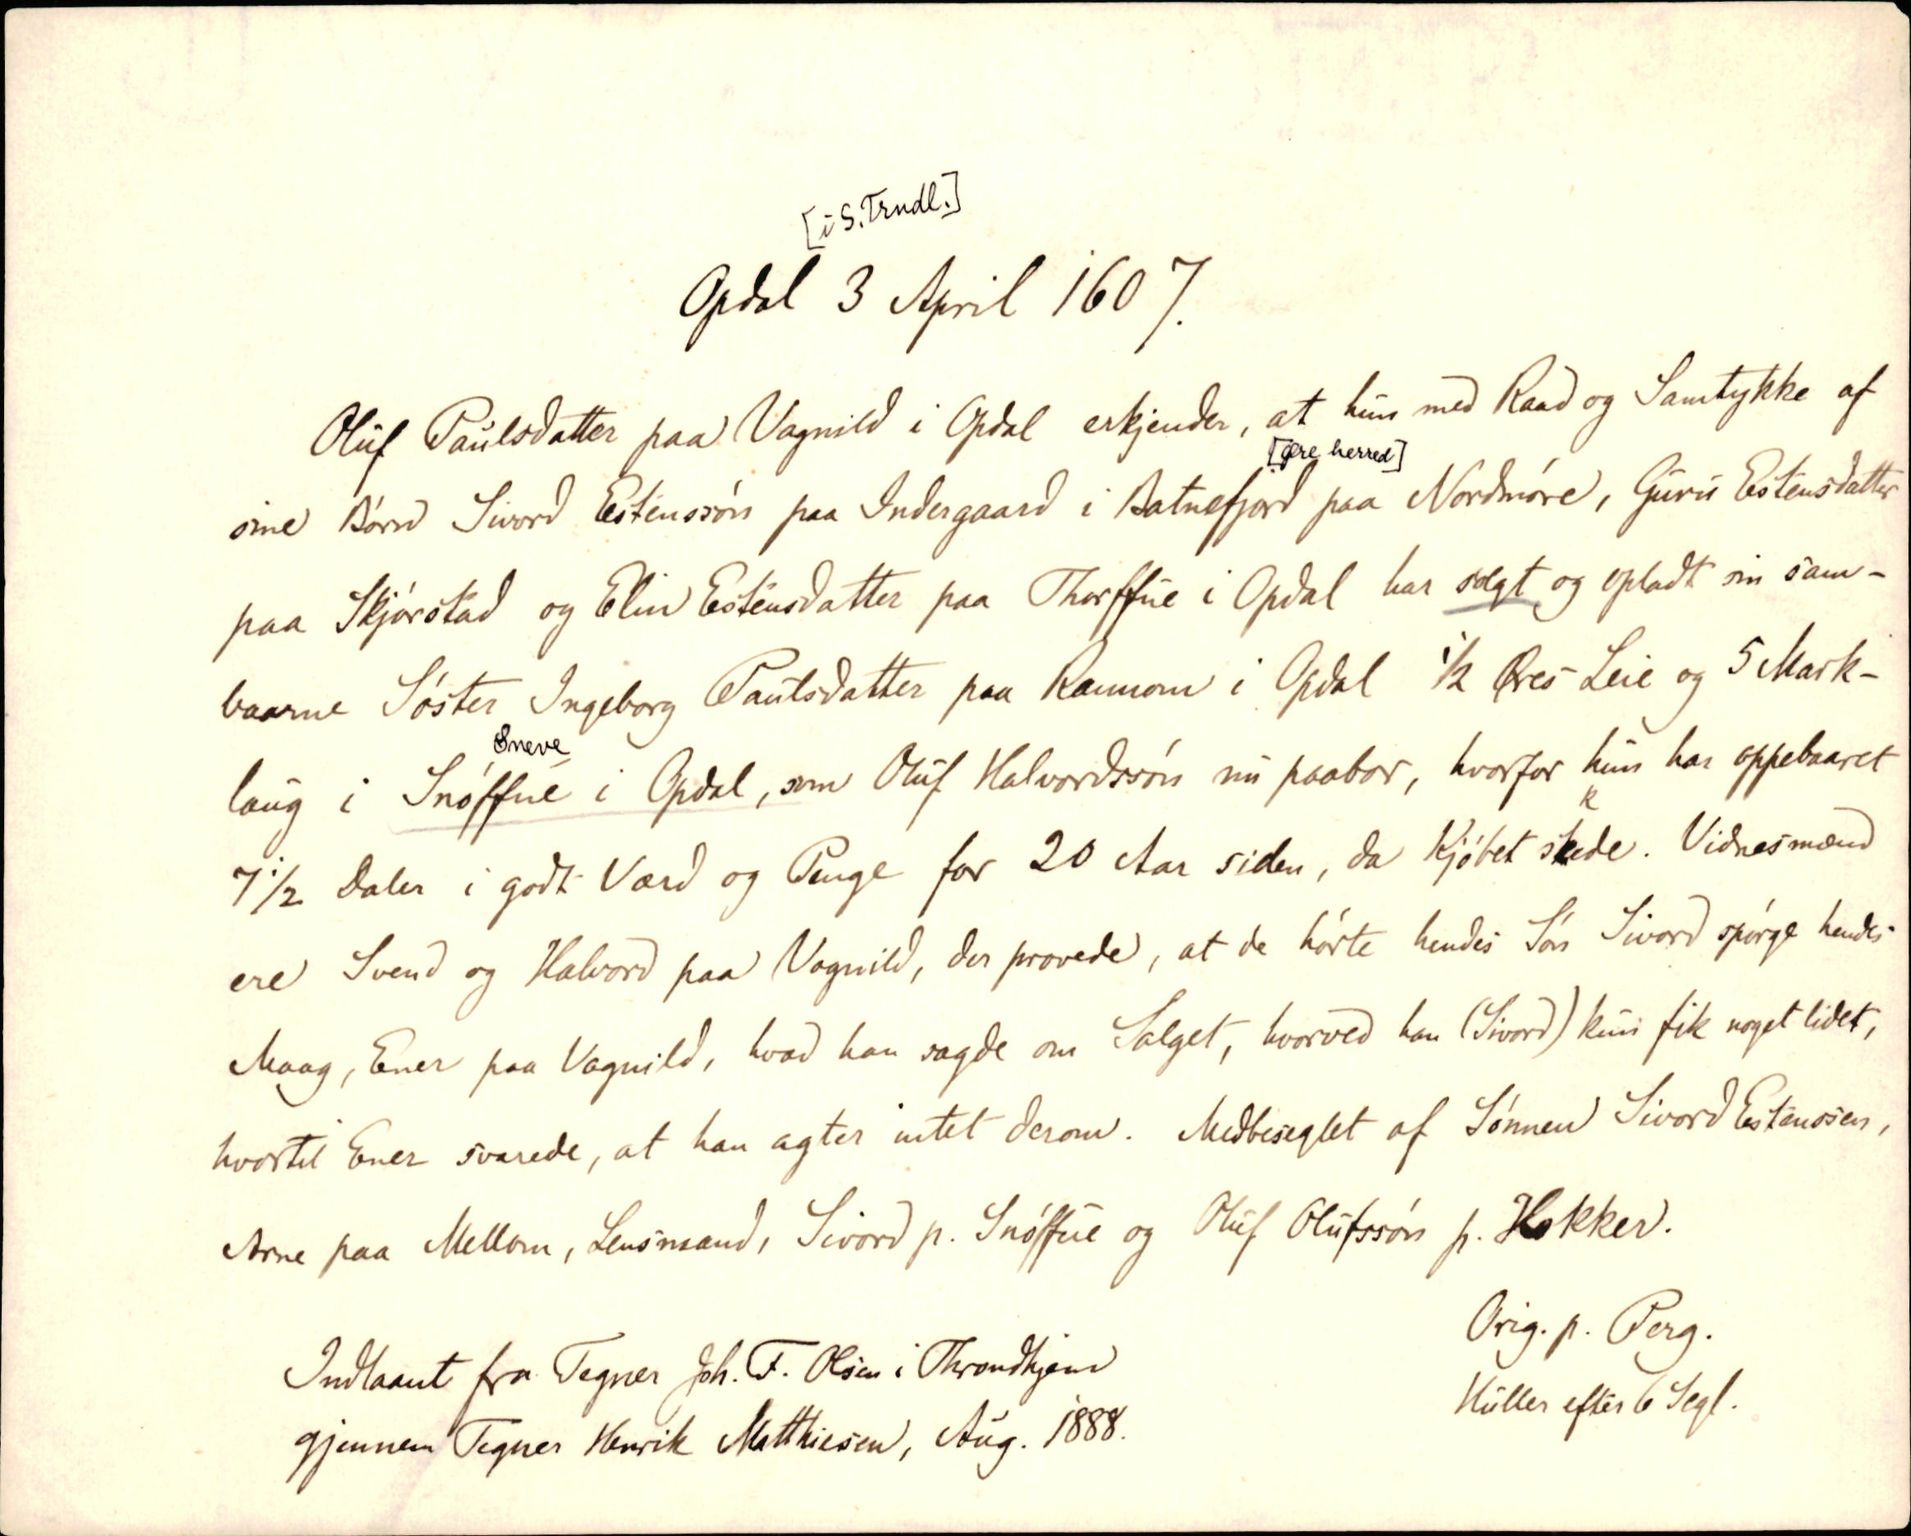 [i S. Trndl.]
Opdal 3 April 1607.
Oluf Paulsdatter paa Vagnild i Opdal erkjender, at hun med Raad og Samtykke af
[Øre herred]
sine Børn Sivord Estenssøn paa Indergaard i Batnefjord paa Nordmøre, Guru Estensdatter
paa Skjørstad og Elin Estensdatter paa Thorffue i Opdal har solgt og opladt sin sam-
baarne Søster Ingeborg Paulsdatter paa Rannom i Opdal 1/2 Øres Leie og 5 Mark-
Sneve
laug i Snøffue i Opdal, som Oluf Halvordssøn nu paabor, hvorfor hun har oppebaaret
k
7 1/2 Daler i godt Værd og Penge for 20 Aar siden, da Kjøbet skede. Vidnesmænd
ere Svend og Halvord paa Vognild, der prøvede, at de hørte hendes Søn Sivord spørge hendes
Maag, Ener paa Vagnild, hvad han sagde om Salget, hvorved han (Sivord) kun fik noget lidet,
hvortil Ener svarede, at han agter intet derom. Medbeseglet af Sønnen Sivord Estenssen,
Arne paa Mellom, Lensmand, Sivord p. Snøffue og Oluf Olufssøn p. Hokker.
Orig. p. Perg.
Huller efter 6 Segl.
Indlaant fra Tegner Joh. F. Olsen i Throndhjem
gjennem Tegner Henrik Matthiesen, Aug. 1888.